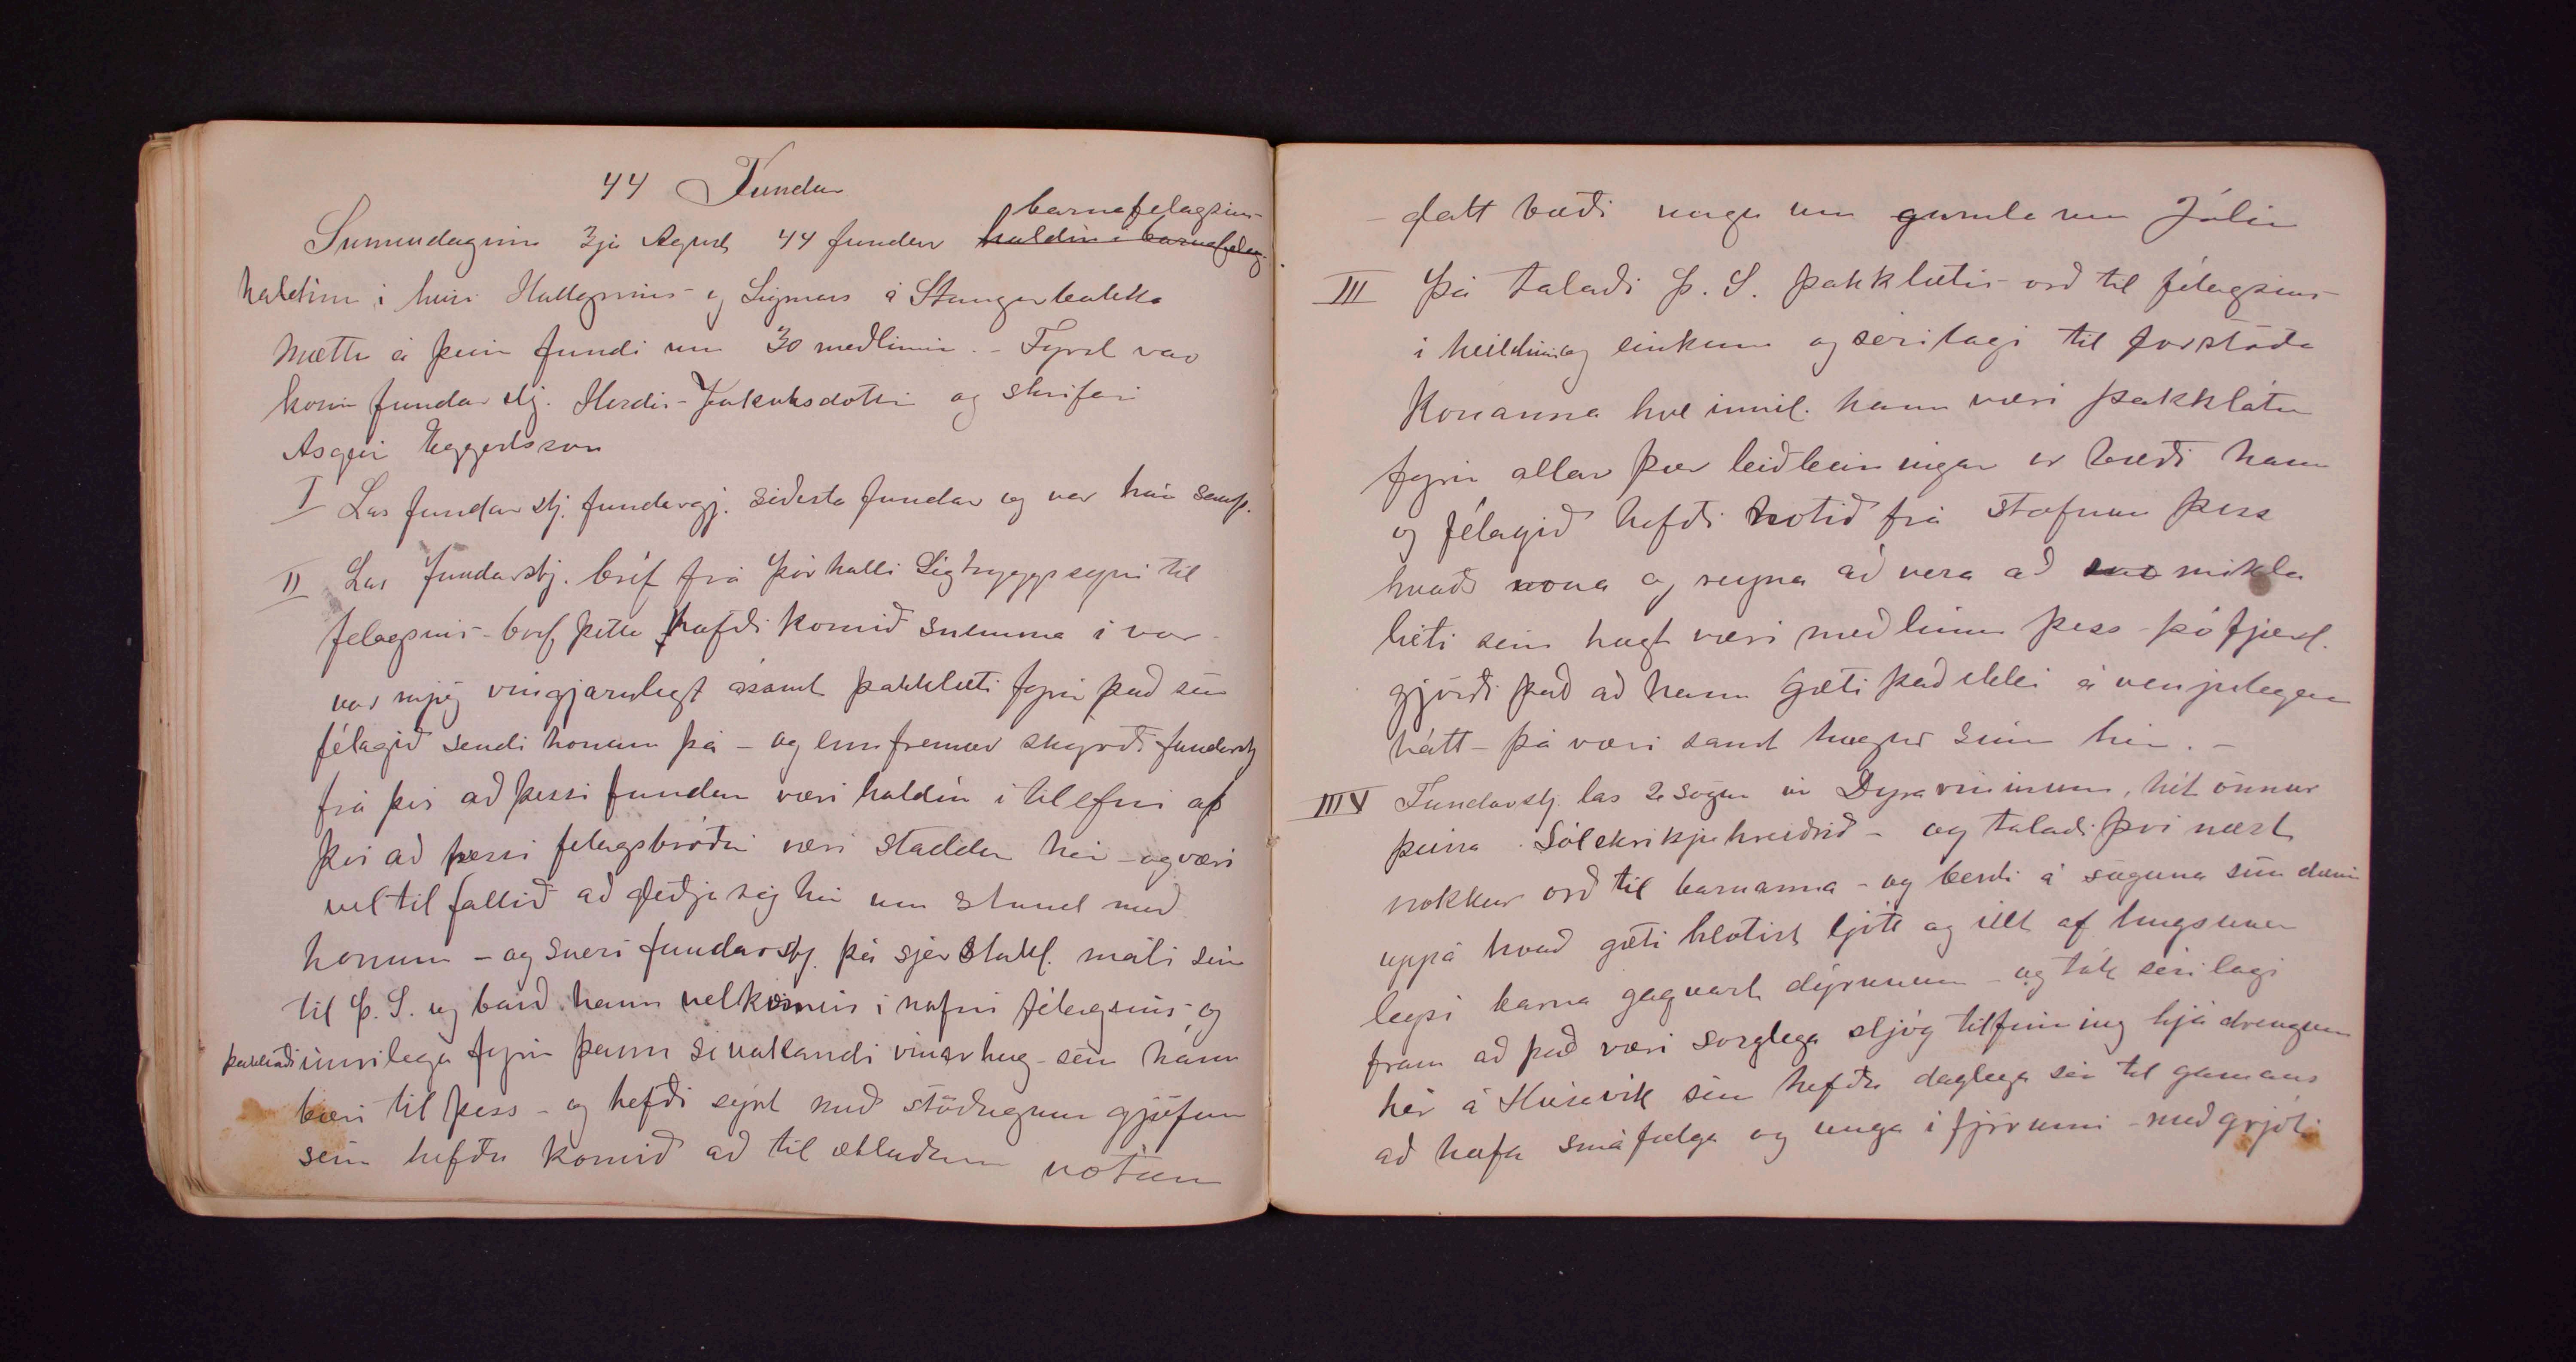 44 Fundur
Sunnudaginn 3ja Agust 44 fundur barnafelagsins
haldin i barnafelag
haldinn i húsi Hallgrims og Sigmars á Stangarbakka
Mættu á þeim fundi um 30 meðlimir. - Fyrst var
kosin fundar stj. Herdis Jakobsdóttir og skrifari
Asgeir Eggertsson
I Las fundar stj. fundargj. síðasta fundar og var hún samþ.
II Las fundarstj. bréf frá Þórhalli Sigtryggssyni til
felagsins - bréf þetta hafði komið snemma i vor -
var mjög vingjarnlegt ásamt þakklæti fyrir það sem
félagið sendi honum þá - og ennfremur skyrði fundarstj
frá því að þessi fundur væri haldin i tilefni af
því að þessi felagsbróðir væri staddur hér - og væri
vel til fallið að gleðja sig hér um stund með
honum - og sneri fundarstj. þá sjerstakl. máli sínu
til Þ. S. og bauð hann velkominn i nafni félagsins, og
þakkaði innilega fyrir þann sívakandi vinarhug sem hann
bæri til þess - og hefði sýnt með stöðugum gjöfum
sem hefðu komið að til ætluðum notum
- glatt bæði unga um gamla um Jólin
III Þá talaði Þ. S. þakklætis-orð til félagsins -
i heildinni og einkum og sérílagi til forstöðu
Konanna hve innil. hann væri þakklátur
fyrir allar þær leiðbeiningar er bæði hann
og félagið hefði hlotið frá stofnun þess
hvað vona og reyna að vera að svo miklu
leiti sem hægt væri meðlimur þess - þó fjærl.
gjörði það að hann gæti það ekki á venjulegan
hátt - þá væri samt hugur sinn hér. -
IIIV Fundarstj. las 2 sögur úr Dyravininum, hét önnur
þeirra Sólskrikjuhreiðrið - og talaði því næst
nokkur orð til barnanna - og benti á söguna sem dæmi
uppá hvað gæti hlotist ljótt og illt af hugsunar
leysi barna gagnvart dýrunum - og tók sérilagi
fram að það væri sorglega sljóg tilfinning hjá drengjum
hér á Húsavík sem hefðu daglega sér til gamans
að hafa smáfugla og unga i fjörunni - með grjóti